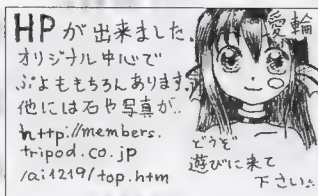 HPが出来ました。
オリジナル中心で
ぷよももちろんあります。
他には石や写真が‥
http://members.
tripod.co.jp
/ai1219/top.htm
愛輪
どうぞ
遊びに来て
下さい。